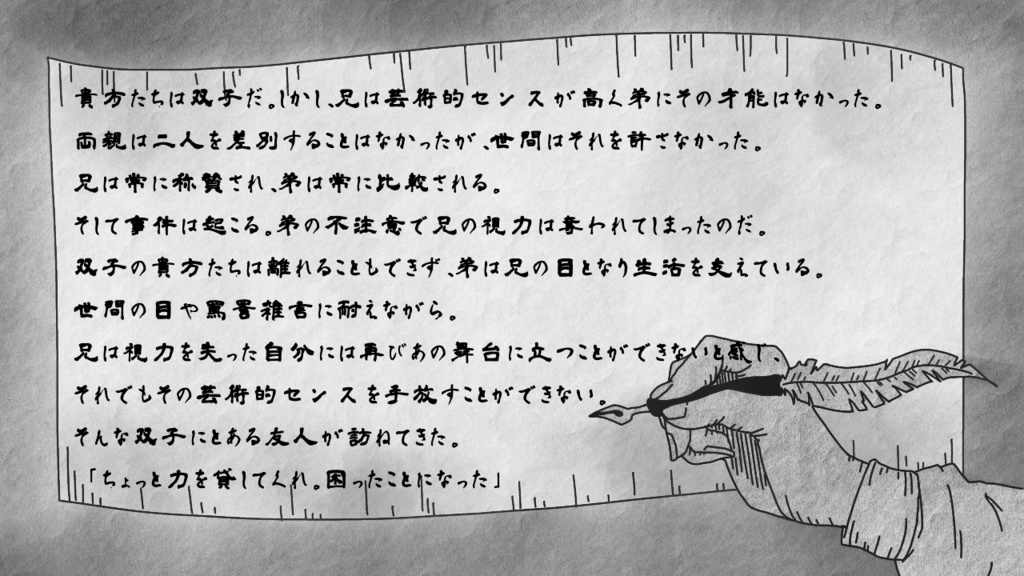 貴方たちは双子だ。しかし、兄は芸術的センスが高く弟にその才能はなかった。
両親は二人を差別することはなかったが、世間はそれを許さなかった。
兄は常に称賛され、弟は常に比較される。
そして事件は起こる。弟の不注意で兄の視力は奪われてしまったのだ。
双子の貴方たちは離れることもできず、弟は兄の目となり生活を支えている。
世間の目や罵詈雑言に耐えながら。
兄は視力を失った自分には再びあの舞台に立つことができないと感じ、
それでもその芸術的センスを手放すことができない。
そんな双子にとある友人が訪ねてきた。
「ちょっと力を貸してくれ。困ったことになった」